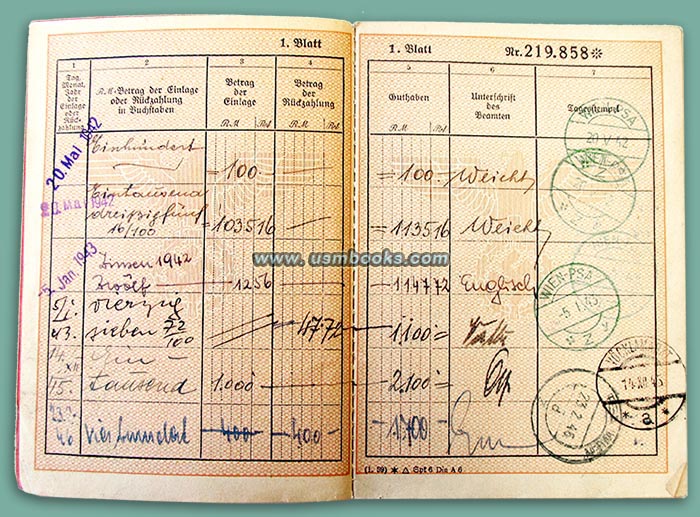 1. Blatt
1 2 3 4
Tag, Monat, Jahr der Einlage oder Rückzahlung
R.M-Betrag der Einlage oder Rückzahlung in Buchstaben
Betrag der Einlage
Betrag der Rückzahlung
R.M. Rpf. R.M. Rpf.
20. Mai 1942
Einhundert
= 100.— —
20. Mai 1942
Eintausend
dreißigfünf
16/100
= 1035 16 —
-5. Jan. 1943
Zinsen 1942
Zwölf 12 56 —
5/I.
43.
vierzig
sieben 72/100
47.72
14.
XII
45.
Ein
tausend
1.000.-
46
vierhundert
-400- -400-
1. Blatt
Nr. 219.858*
5 6 7
Guthaben
Unterschrift des Beamten
Tagesstempel
R.M. Rpf.
= 100.— Weicht
WIEN-PSA
20.V.42
= 1135 16 Weicht
WIEN-PSA
Z
1147 72 Englisch
WIEN-PSA
-5.I.43
Z
1.100.=
2.100.=
14.XII.45
* a *
1700
23.2.46
(1. 39) * △ Spt 6 Din A 6
www.usmbooks.com